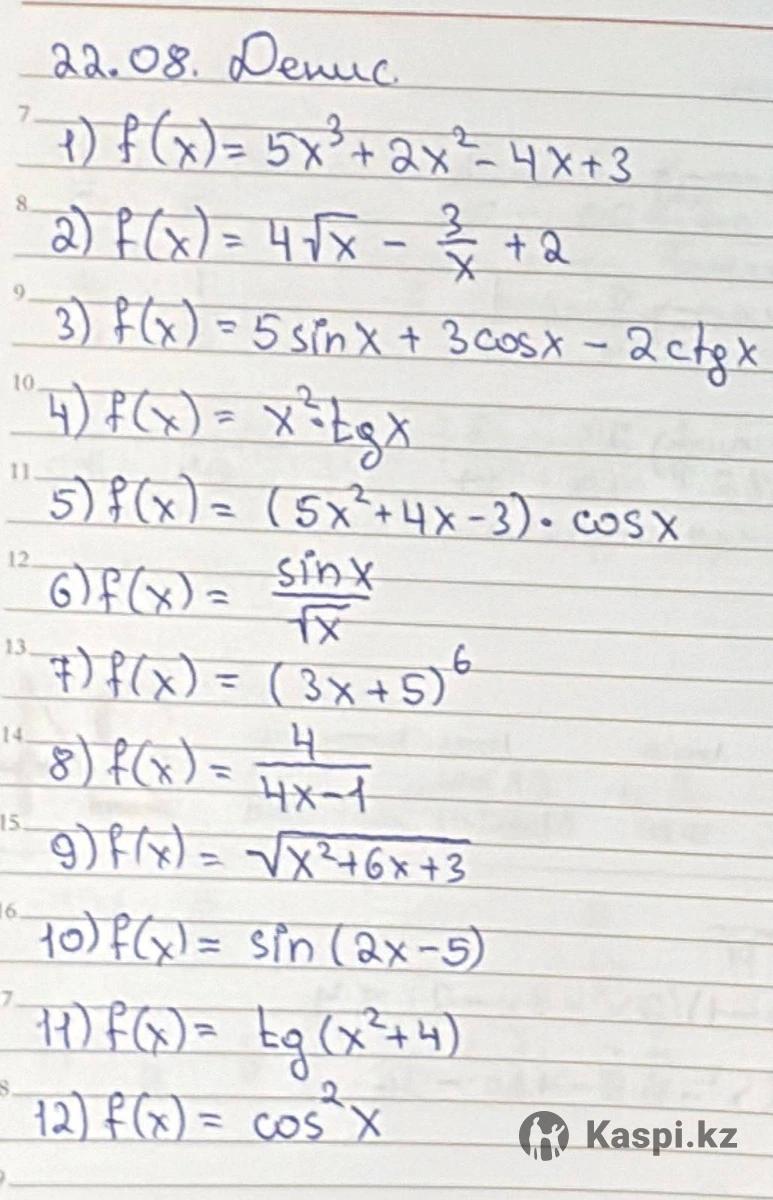 22.08. Денис.
7
1) f(x) = 5x³ + 2x² - 4x + 3
8
2) f(x) = 4√x - 3/x + 2
9
3) f(x) = 5 sin x + 3 cos x - 2 ctg x
10
4) f(x) = x² · tg x
11
5) f(x) = (5x² + 4x - 3) · cos x
12
6) f(x) = sin x / √x
13
7) f(x) = (3x + 5)⁶
14
8) f(x) = 4 / (4x - 1)
15
9) f(x) = √(x² + 6x + 3)
16
10) f(x) = sin (2x - 5)
7
11) f(x) = tg (x² + 4)
8
12) f(x) = cos² x
Kaspi.kz